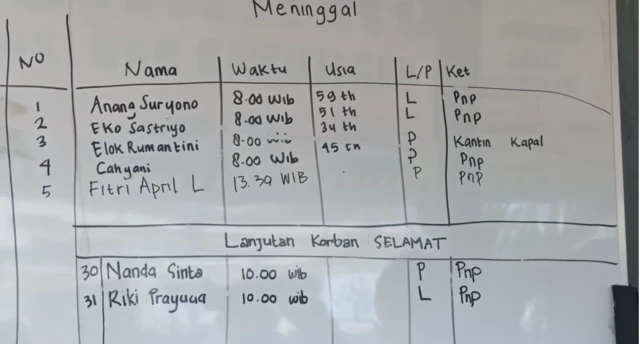 Meninggal
NO Nama Waktu Usia L/P Ket
1 Anang Suryono 8.00 Wib 59 th L Pnp
2 Eko Sastriyo 8.00 Wib 51 th L Pnp
3 Elok Rumantini 8.00 Wib 34 th P Kantin Kapal
4 Cahyani 8.00 Wib 45 th P Pnp
5 Fitri April L 13.30 WIB P Pnp
Lanjutan Korban SELAMAT
30 Nanda Sinta 10.00 wib P Pnp
31 Riki 10.00 wib L Pnp